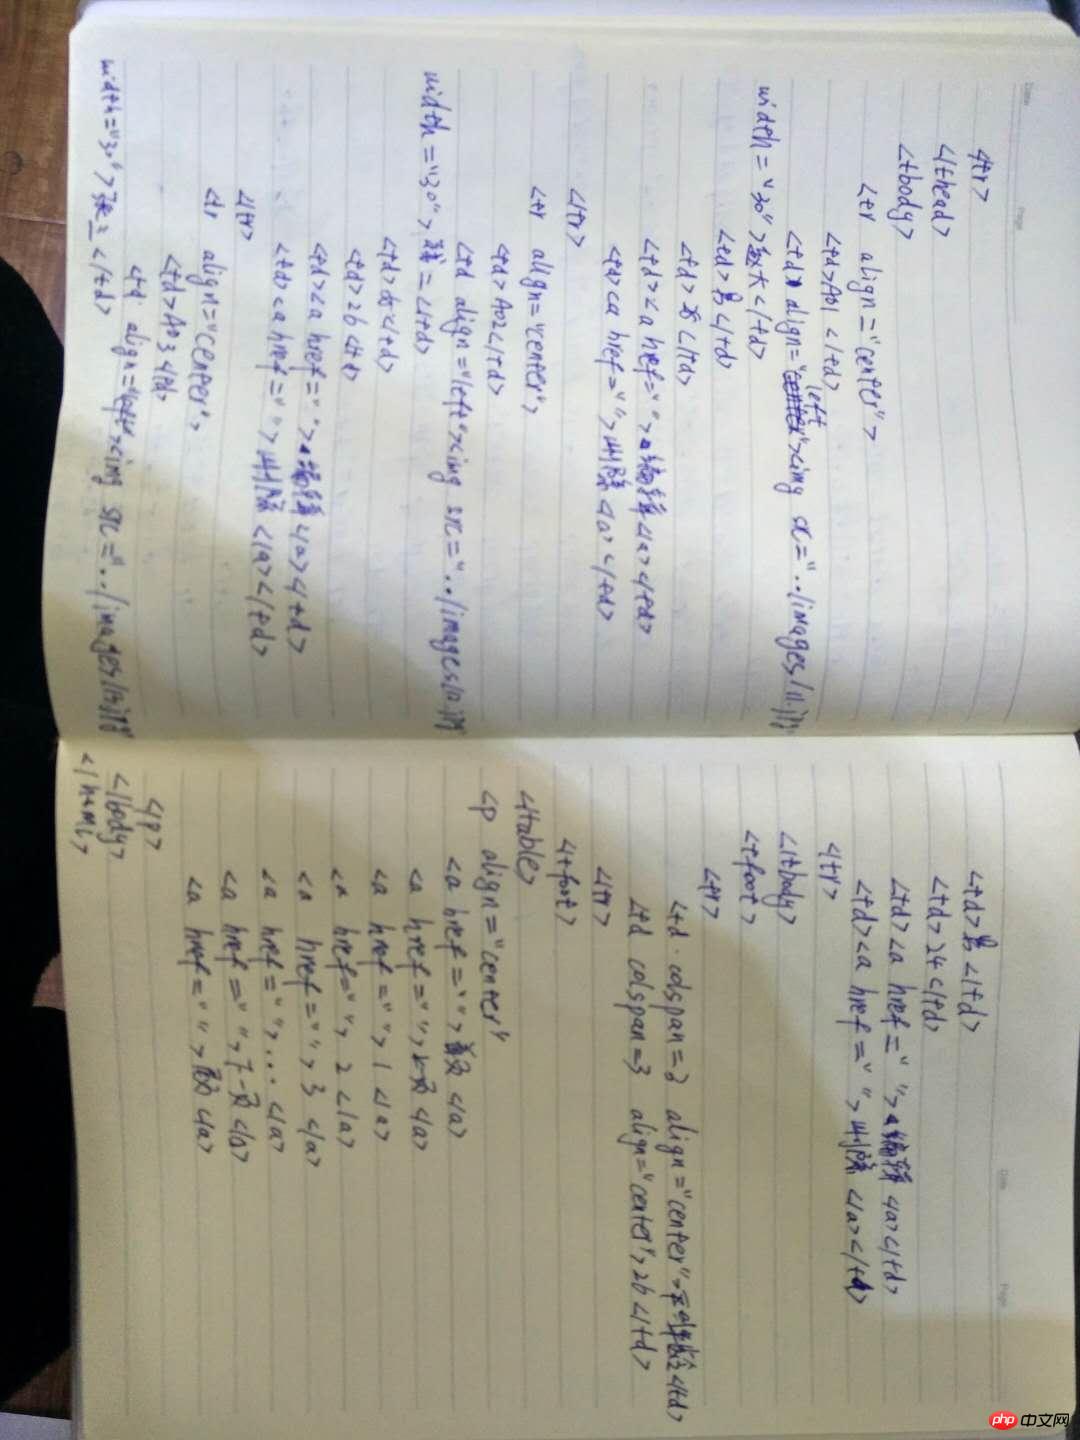 </tr>
</thead>
<tbody>
<tr align="center">
<td>A01</td>
<td> align="left"><img src="../images/1.jpg"
width="30">
</td>
<td>男</td>
<td>
</td>
<td><a href=" ">编辑</a></td>
<td><a href=" ">删除<a></td>
</tr>
<tr align="center">
<td>A02</td>
<td align="left"><img src="../images/2.jpg"
width="30">
</td>
<td>女</td>
<td>26<td>
<td><a href=" ">编辑</a></td>
<td><a href=" ">删除</a></td>
</tr>
<tr align="center">
<td>A03</td>
<td align="left"><img src="../images/3.jpg"
width="30">张三</td>
<td>男</td>
<td>24</td>
<td><a href=" ">编辑</a></td>
<td><a href=" ">删除</a></td>
</tr>
</tbody>
<tfoot>
<tr>
<td colspan=3 align="center">平均年龄</td>
<td colspan=3 align="center">26</td>
</tr>
</tfoot>
</table>
<p align="center"
<a href=" ">首页</a>
<a href=" ">上一页</a>
<a href=" ">1</a>
<a href=" ">2</a>
<a href=" ">3</a>
<a href=" ">...</a>
<a href=" ">下一页</a>
<a href=" ">尾页</a>
</p>
</body>
</html>
Date
Page
Date
Page
php 中文网